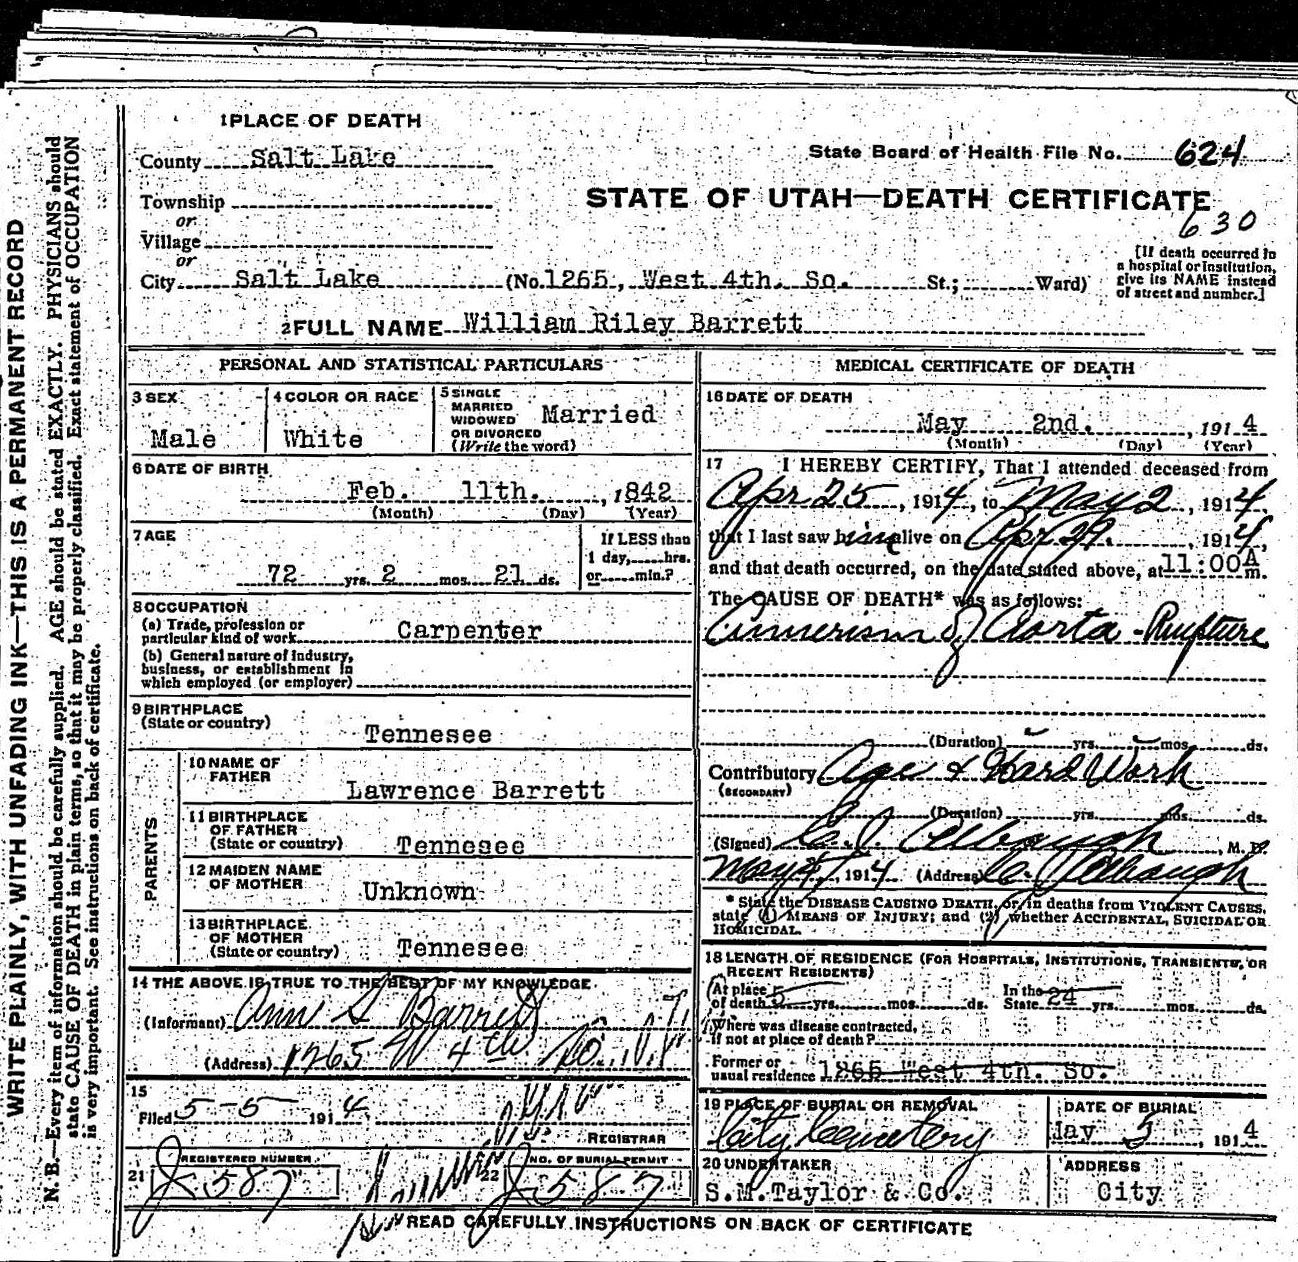 1 PLACE OF DEATH
County Salt Lake
State Board of Health File No. 624
Township
or
Village
or
STATE OF UTAH—DEATH CERTIFICATE
630
City Salt Lake (No. 1265, West 4th. So. St.; Ward)
[If death occurred in
a hospital or institution,
give its NAME instead
of street and number.]
2 FULL NAME William Riley Barrett
PERSONAL AND STATISTICAL PARTICULARS
3 SEX
Male
4 COLOR OR RACE
White
5 SINGLE
MARRIED
WIDOWED
OR DIVORCED
(Write the word)
Married
6 DATE OF BIRTH
Feb. 11th. , 1842
(Month) (Day) (Year)
7 AGE
72 yrs. 2 mos. 21 ds.
If LESS than
1 day, hrs.
or min.?
8 OCCUPATION
(a) Trade, profession or
particular kind of work Carpenter
(b) General nature of industry,
business, or establishment in
which employed (or employer)
9 BIRTHPLACE
(State or country)
Tennesee
PARENTS
10 NAME OF
FATHER
Lawrence Barrett
11 BIRTHPLACE
OF FATHER
(State or country) Tennesee
12 MAIDEN NAME
OF MOTHER Unknown
13 BIRTHPLACE
OF MOTHER
(State or country) Tennesee
14 THE ABOVE IS TRUE TO THE BEST OF MY KNOWLEDGE
(Informant) Ann S Barrett
(Address) 1265 W 4th So.
15
Filed 5-5 1914
REGISTRAR
21 REGISTERED NUMBER
587
22 NO. OF BURIAL PERMIT
587
MEDICAL CERTIFICATE OF DEATH
16 DATE OF DEATH
May 2nd. , 1914
(Month) (Day) (Year)
17 I HEREBY CERTIFY, That I attended deceased from
Apr 25, 1914, to May 2, 1914,
that I last saw him alive on Apr 29, 1914,
and that death occurred, on the date stated above, at 11:00 A m.
The CAUSE OF DEATH* was as follows:
Annerism of Aorta - Rupture
(Duration) yrs. mos. ds.
Contributory Age & Hard Work
(SECONDARY)
(Duration) yrs. mos. ds.
(Signed) Albaugh, M. D.
May 4, 1914 (Address)
* State the DISEASE CAUSING DEATH, or, in deaths from VIOLENT CAUSES,
state (1) MEANS OF INJURY; and (2) whether ACCIDENTAL, SUICIDAL OR
HOMICIDAL.
18 LENGTH OF RESIDENCE (FOR HOSPITALS, INSTITUTIONS, TRANSIENTS, OR
RECENT RESIDENTS)
At place
of death 5 yrs. mos. ds.
In the
State 24 yrs. mos. ds.
Where was disease contracted,
if not at place of death?
Former or
usual residence 1265 West 4th. So.
19 PLACE OF BURIAL OR REMOVAL
City Cemetery
DATE OF BURIAL
May 5 1914
20 UNDERTAKER
S.M.Taylor & Co.
ADDRESS
City
READ CAREFULLY INSTRUCTIONS ON BACK OF CERTIFICATE
WRITE PLAINLY, WITH UNFADING INK—THIS IS A PERMANENT RECORD
N. B.—Every item of information should be carefully supplied. AGE should be stated EXACTLY. PHYSICIANS should
state CAUSE OF DEATH in plain terms, so that it may be properly classified. Exact statement of OCCUPATION
is very important. See instructions on back of certificate.